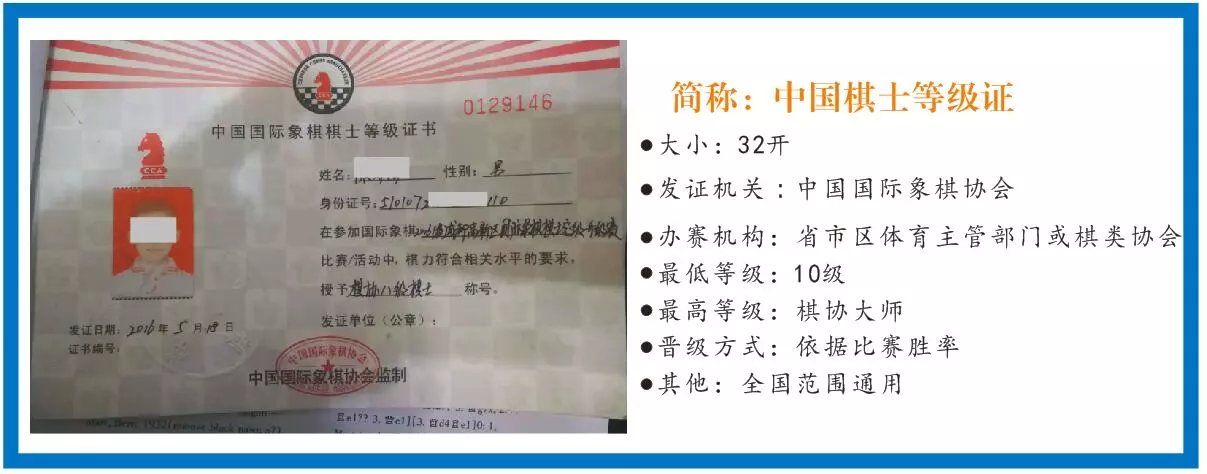 0129146
中国国际象棋棋士等级证书
CCA
CCA
姓名: 性别: 男
身份证号: 5101072 110
在参加国际象棋2016
比赛/活动中,棋力符合相关水平的要求。
授予 棋协八级棋士 称号。
发证单位(公章):
发证日期: 2016 年 5 月 18 日
证书编号:
中国国际象棋协会
中国国际象棋协会监制
简称:中国棋士等级证
●大小:32开
●发证机关:中国国际象棋协会
●办赛机构:省市区体育主管部门或棋类协会
●最低等级:10级
●最高等级:棋协大师
●晋级方式:依据比赛胜率
●其他:全国范围通用